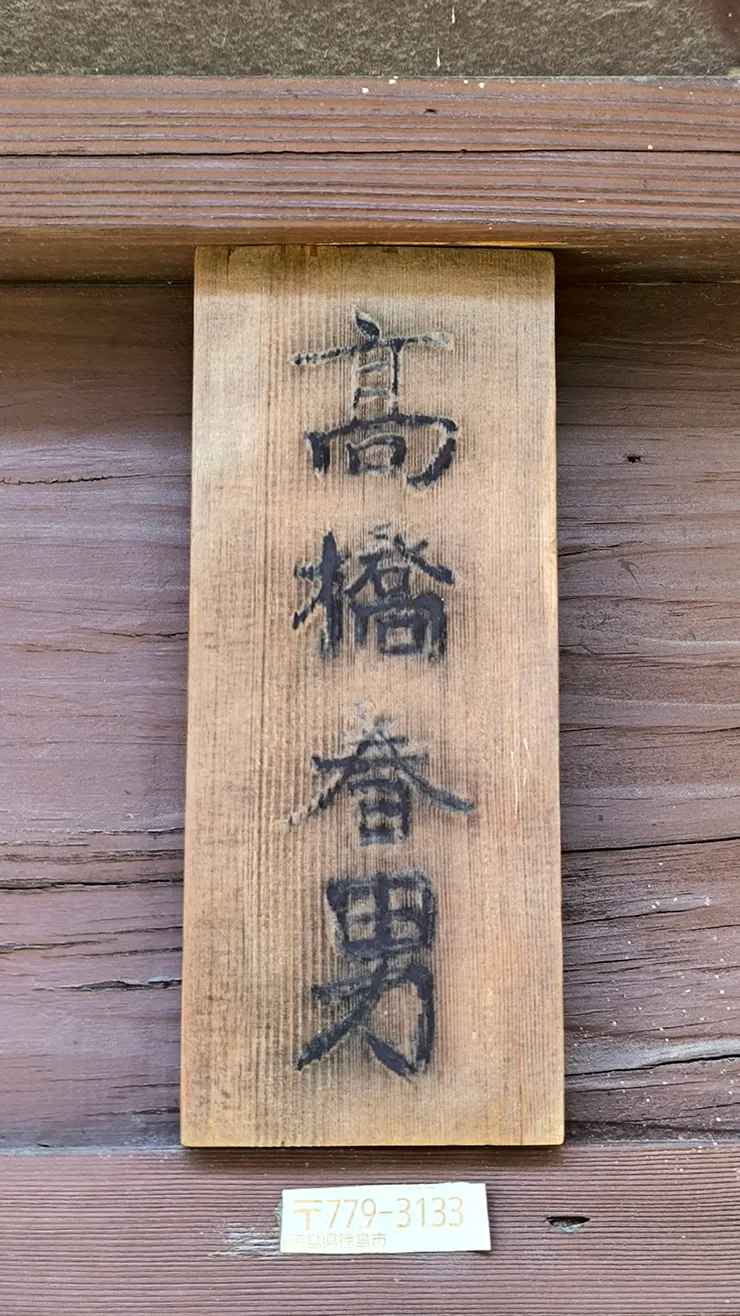 髙橋春男
〒779-3133
徳島県徳島市